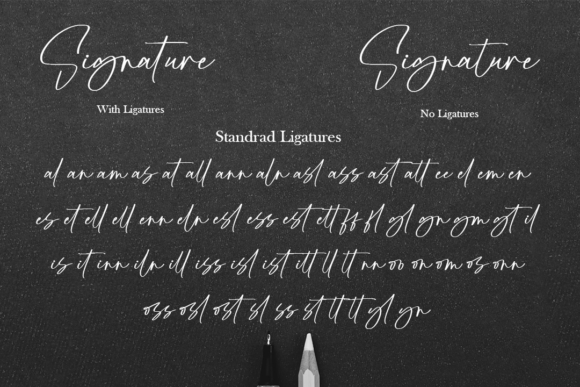 Signature
Signature
With Ligatures
No Ligatures
Standrad Ligatures
al an am as at all ann aln asl ass ast att ee el em en
es et ell ell enn eln esl ess est ett ff fl gl gn gm gt il
is it inn iln ill iss isl ist itt ll lt nn oo on om os onn
oss osl ost sl ss st tt lt yl yn